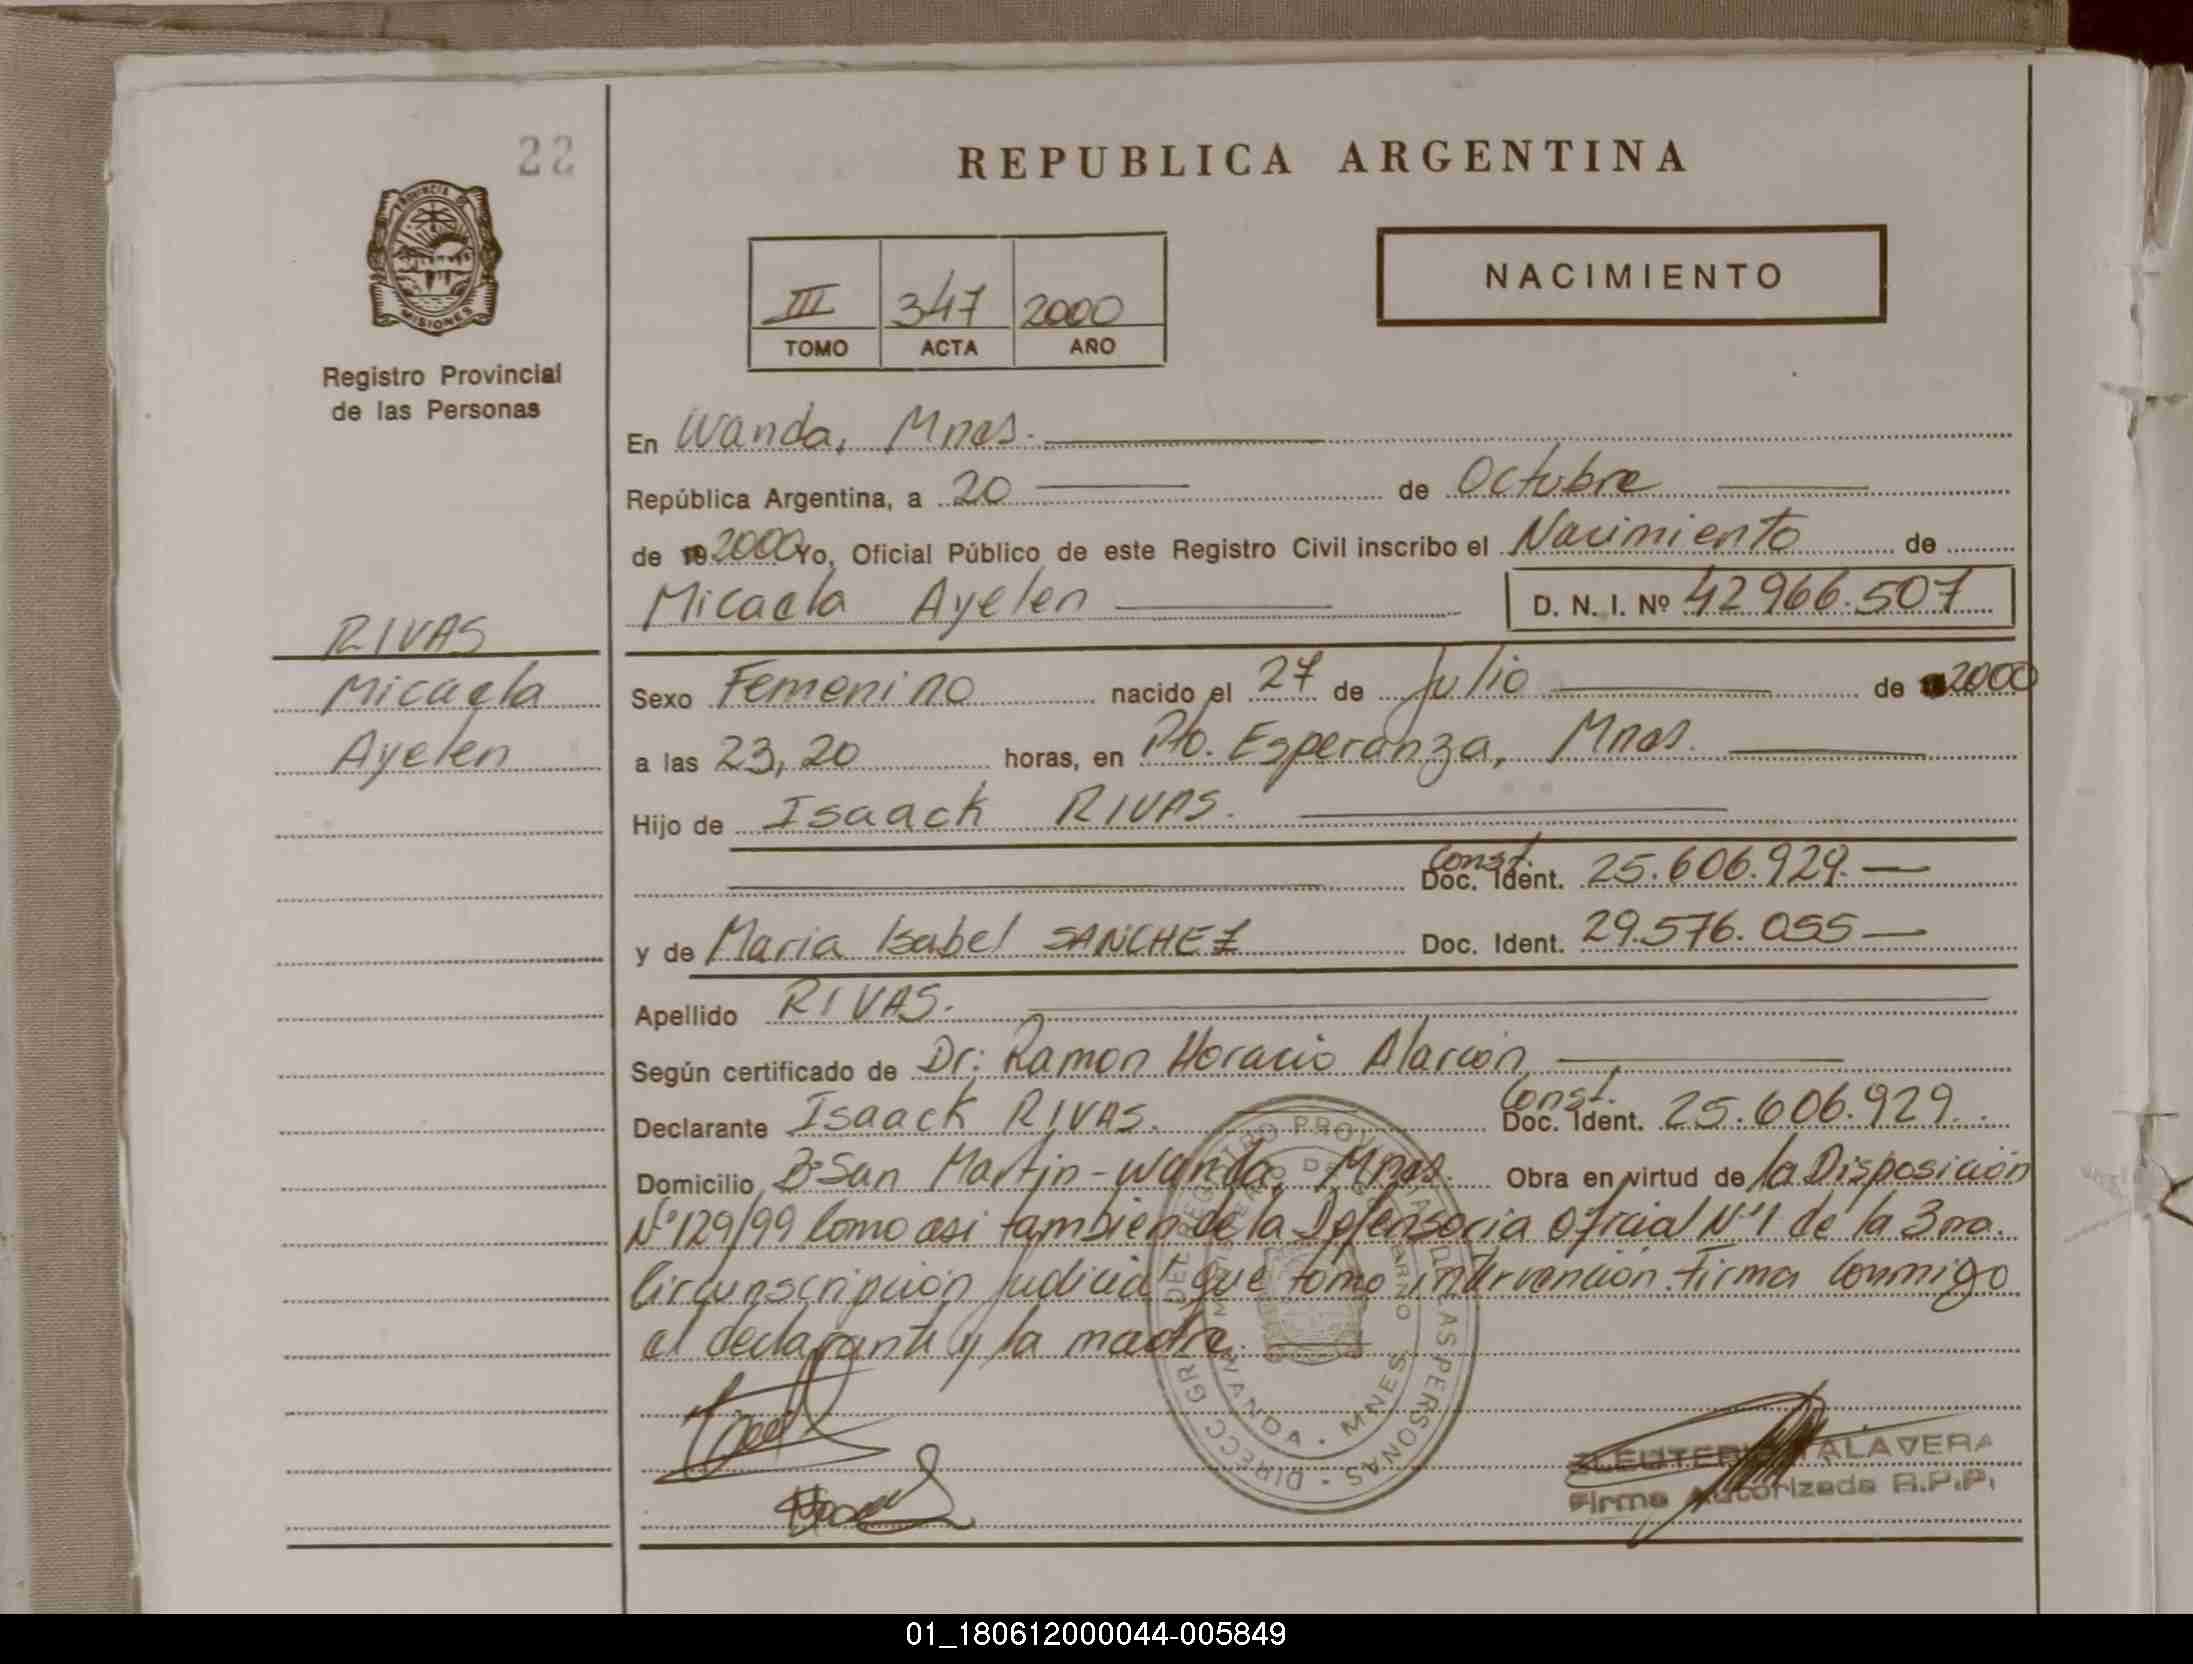 22
REPUBLICA ARGENTINA
PROVINCIA
MISIONES
NACIMIENTO
III 347 2000
TOMO ACTA AÑO
Registro Provincial
de las Personas
En Wanda, Mnes.
República Argentina, a 20 de Octubre
de 19 2000 Yo, Oficial Público de este Registro Civil inscribo el Nacimiento de
Micaela Ayelen D. N. I. Nº 42966.507
RIVAS
Micaela
Ayelen
Sexo Femenino nacido el 27 de Julio de 2000
a las 23,20 horas, en Pto. Esperanza, Mnes.
Hijo de Isaack RIVAS.
Const.
Doc. Ident. 25.606.929.
y de Maria Isabel SANCHEZ Doc. Ident. 29.576.055
Apellido RIVAS.
Según certificado de Dr: Ramon Horacio Alarcón
Const.
Declarante Isaack RIVAS. Doc. Ident. 25.606.929.
Domicilio Bº San Martin - Wanda, Mnes. Obra en virtud de la Disposición
Nº 129/99 como asi tambien de la Defensoria Oficial Nº 1 de la 3ra.
Circunscripción judicial que tomo intervención. Firma conmigo
el declarante y la madre.
WANDA - MNES
ELEUTERIO TALAVERA
Firma Autorizada R.P.P.
01_180612000044-005849